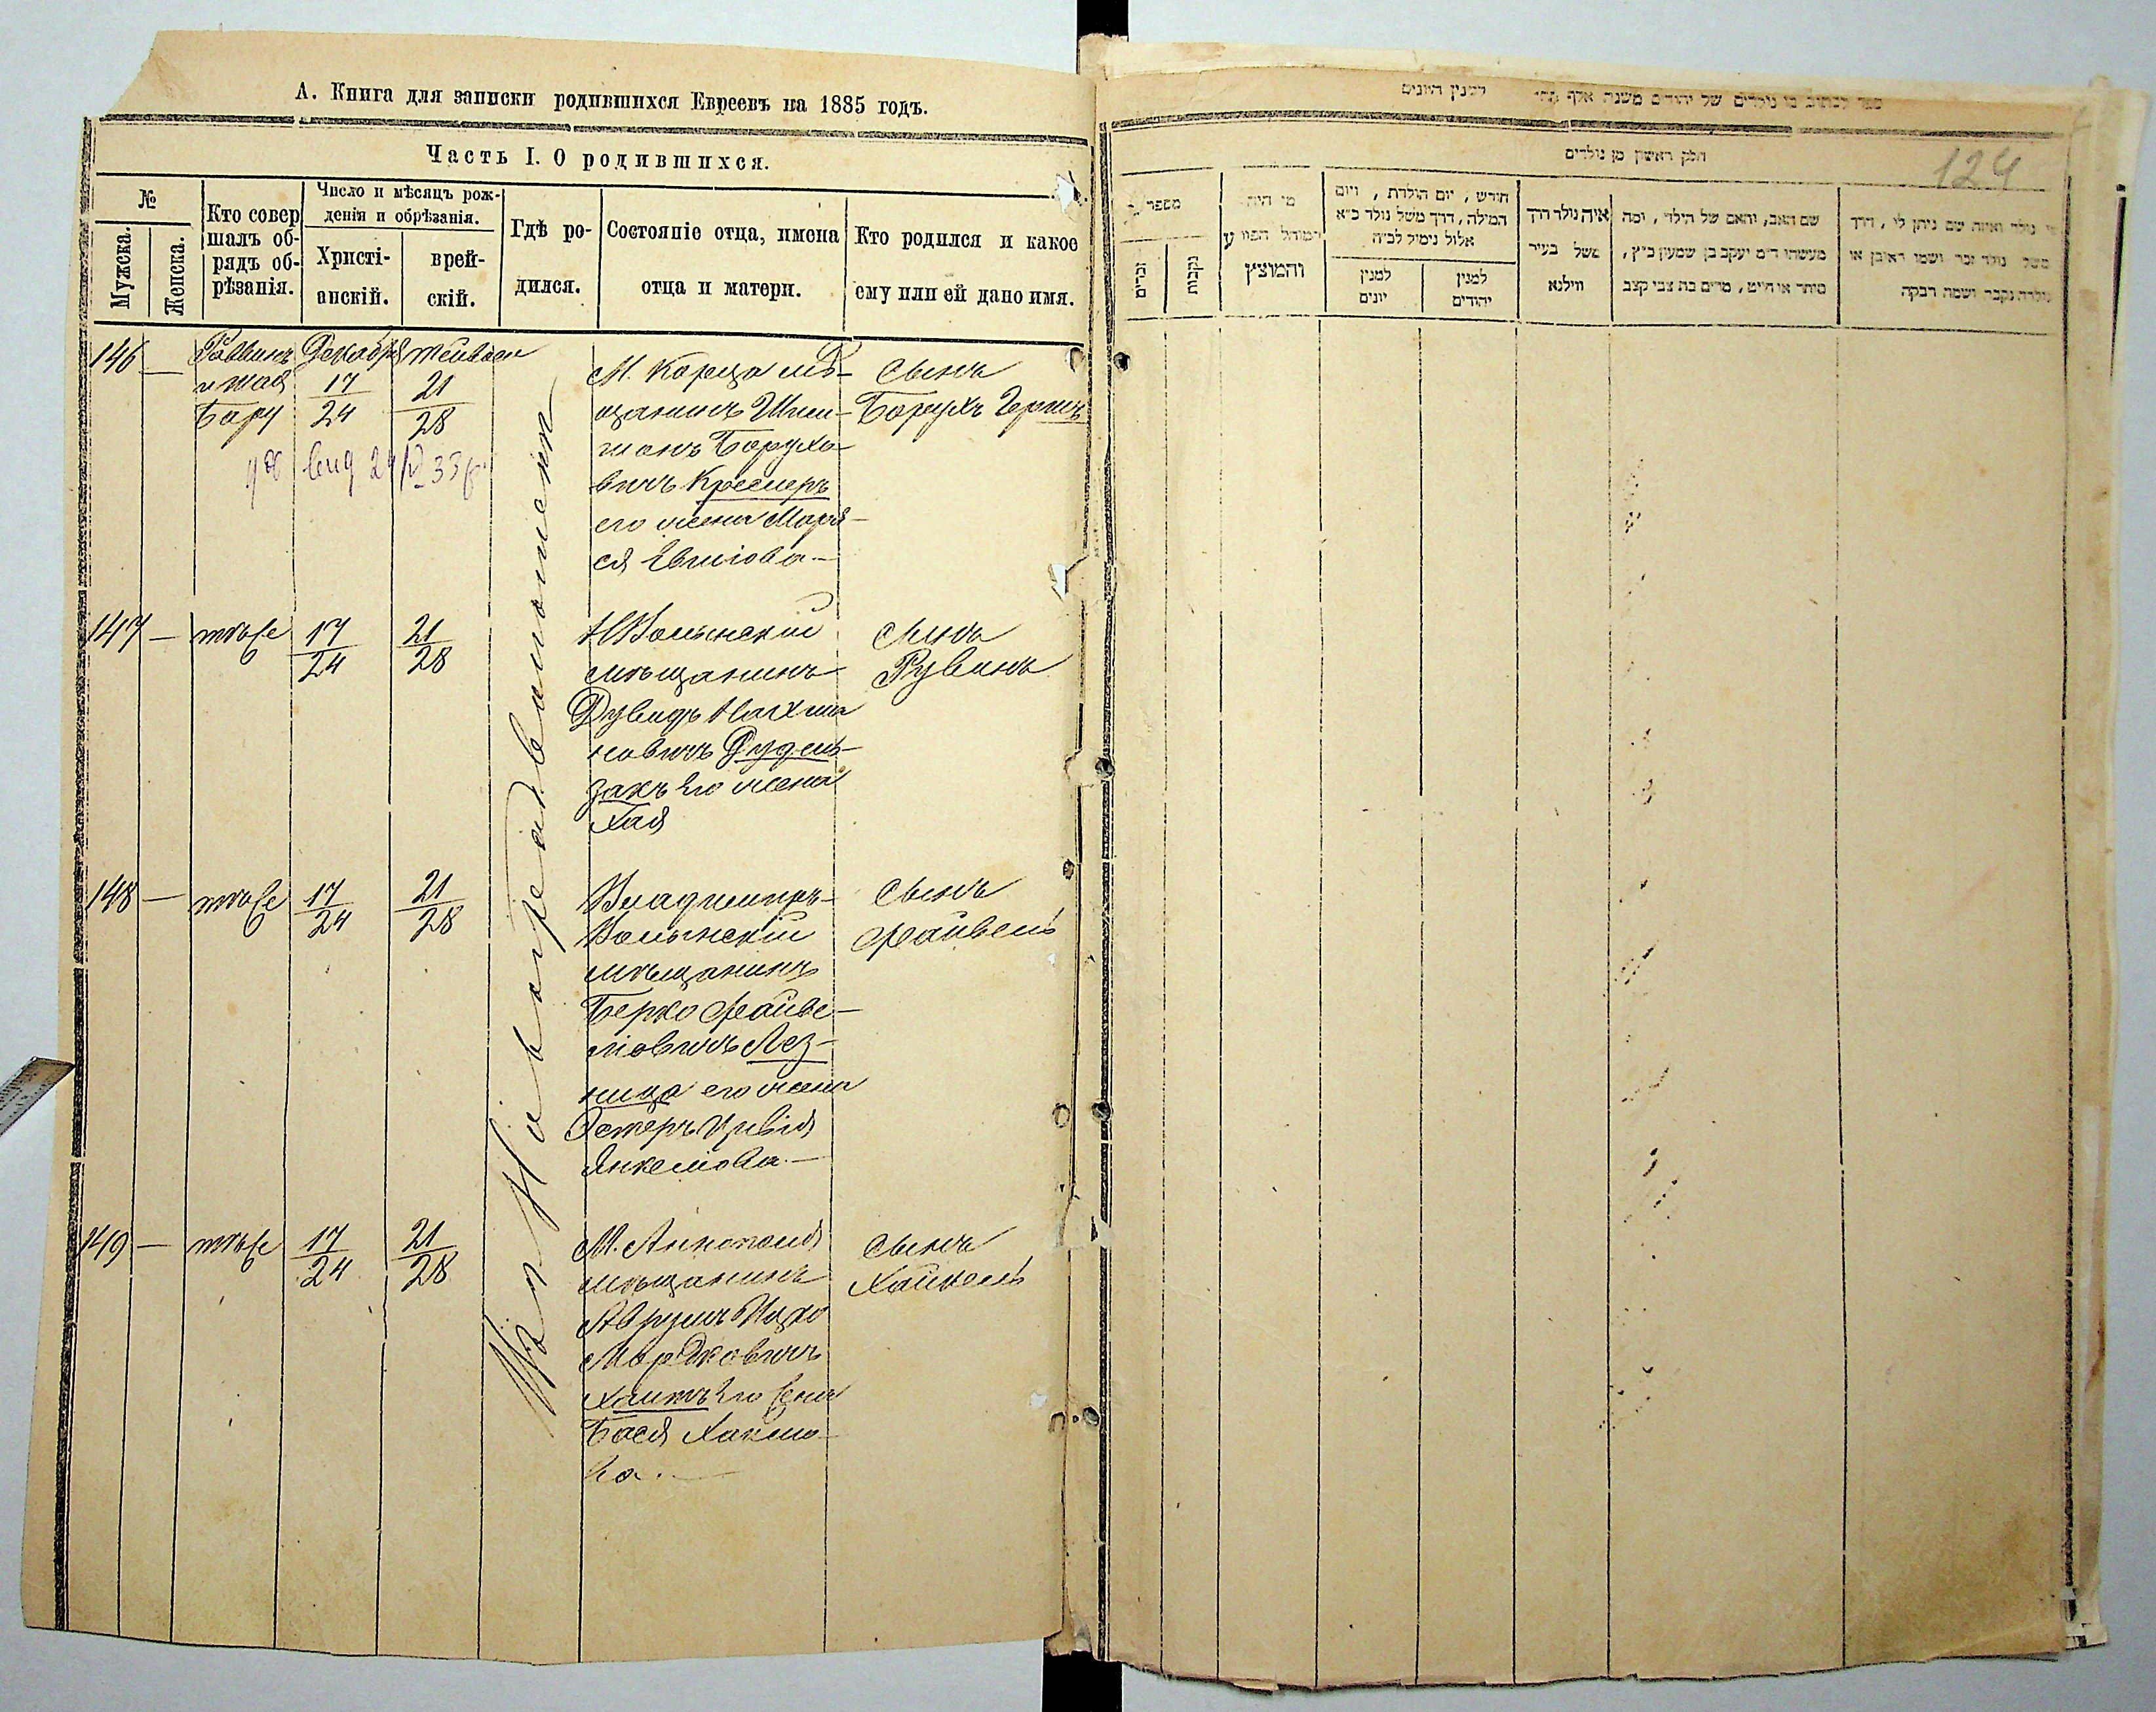 А. Книга для записки родившихся Евреевъ на 1885 годъ.
Часть I. О родившихся.
№
Мужска.
Женска.
Кто совер
шалъ об-
рядъ об-
рѣзанія.
Число и мѣсяцъ рож-
денія и обрѣзанія.
Христі-
анскій.
врей-
скій.
Гдѣ ро-
дился.
Состояніе отца, имена
отца и матери.
Кто родился и какое
ему или ей дано имя.
146 —
Раввинъ Декабря
17
24
21
28
М. Кореца мѣ-
щанинъ
Борухо-
вичъ Крсмеръ
его жена
сынъ
Борухъ Гершъ
147 — тоже
17
24
21
28
Н Волынскій
мѣщанинъ
Дувидъ Нахма
новичъ Дудель-
закъ его жена
Хая
сынъ
Рувинъ
148 — тоже
17
24
21
28
Владимиръ-
Волынскій
мѣщанинъ
Берко Файве-
ловичъ Лез-
ница его жена
Эстеръ Цивія
Янкелова. —
сынъ
Файвель
149 — тоже
17
24
21
28
М. Аннополя
мѣщанинъ
Аврумъ Ицко
Мордковичъ
его жена
Бася Хаимо-
ва. —
сынъ
Хайкель
Новоградволынскъ
חלק ראשון מן נולדים
124
מספר
זכרים
נקבות
מי היה
והמוצץ
חודש , יום הולדת , ויום
המילה, דרך משל נולד כ״א
אלול נימול לכ״ח
למנין
יונים
למנין
יהודים
איה נולד דרך
משל בעיר
ווילנא
שם האב, והאם של הילד , ומה
מעשהו ד״מ יעקב בן שמעון כ״ץ,
סוחר או חייט, מרים בת צבי קצב
נולד ואיזה שם ניתן לו , דרך
משל נולד זכר ושמו ראובן או
נולדה נקבה ושמה רבקה